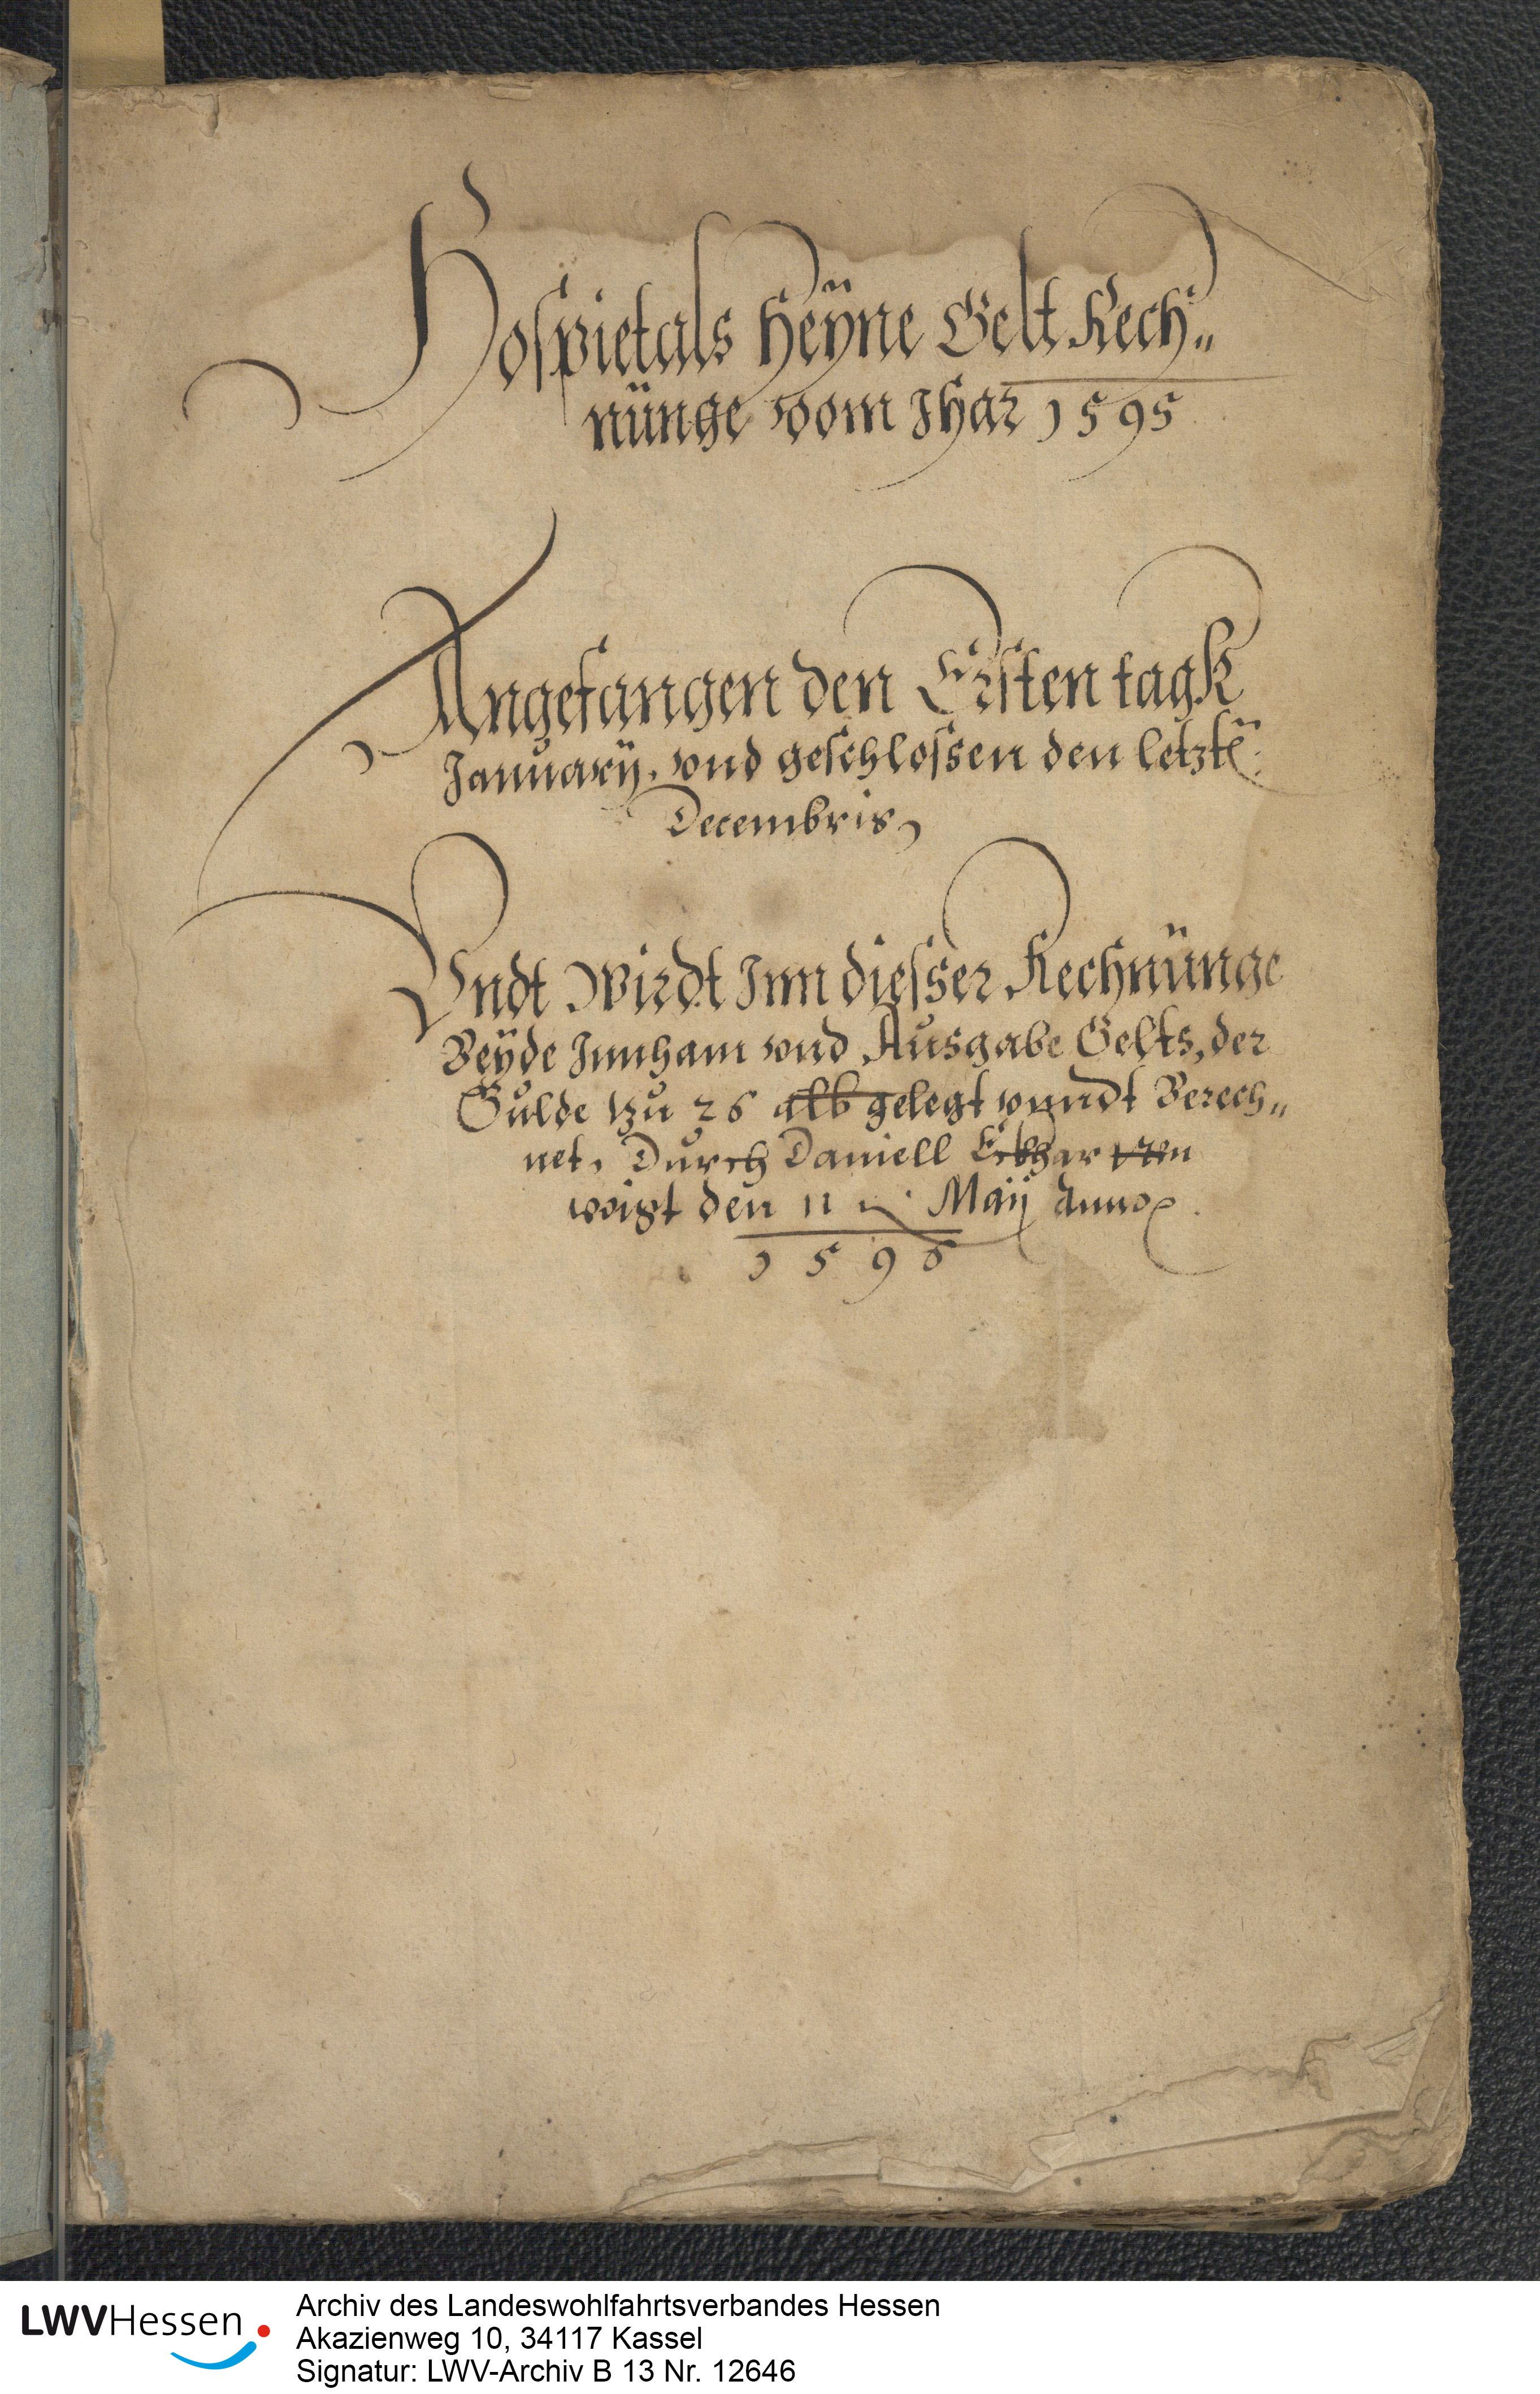 Hospietals Heÿne Gelt Rech„
nünge vom Jhar 1595
Angefangen den Ersten tagk
Januarÿ, vnd geschlossen den letztē
Decembris,
Vndt Wirdt Jnn diesser Rechnünge
Beÿde Jnnham vnd Ausgabe Gelts, der
Gulde tzu 26 alb gelegt vnndt Berech„
net, Durch Daniell Eckhar
voigt den 11 Maÿ Anno
1596
LWVHessen
Archiv des Landeswohlfahrtsverbandes Hessen
Akazienweg 10, 34117 Kassel
Signatur: LWV-Archiv B 13 Nr. 12646